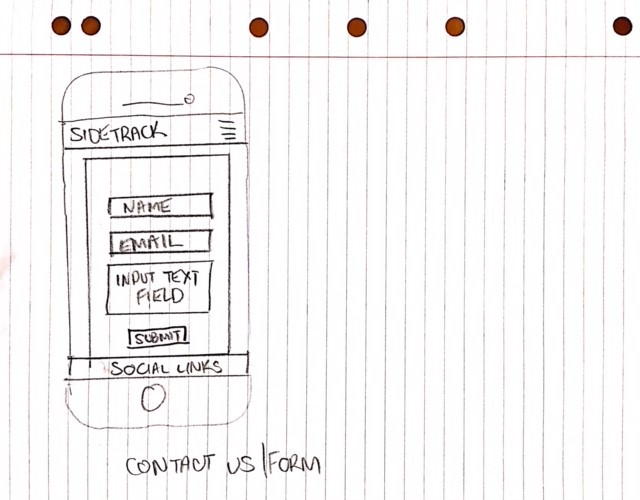 SIDETRACK
NAME
EMAIL
INPUT TEXT
FIELD
SUBMIT
SOCIAL LINKS
CONTACT US/FORM